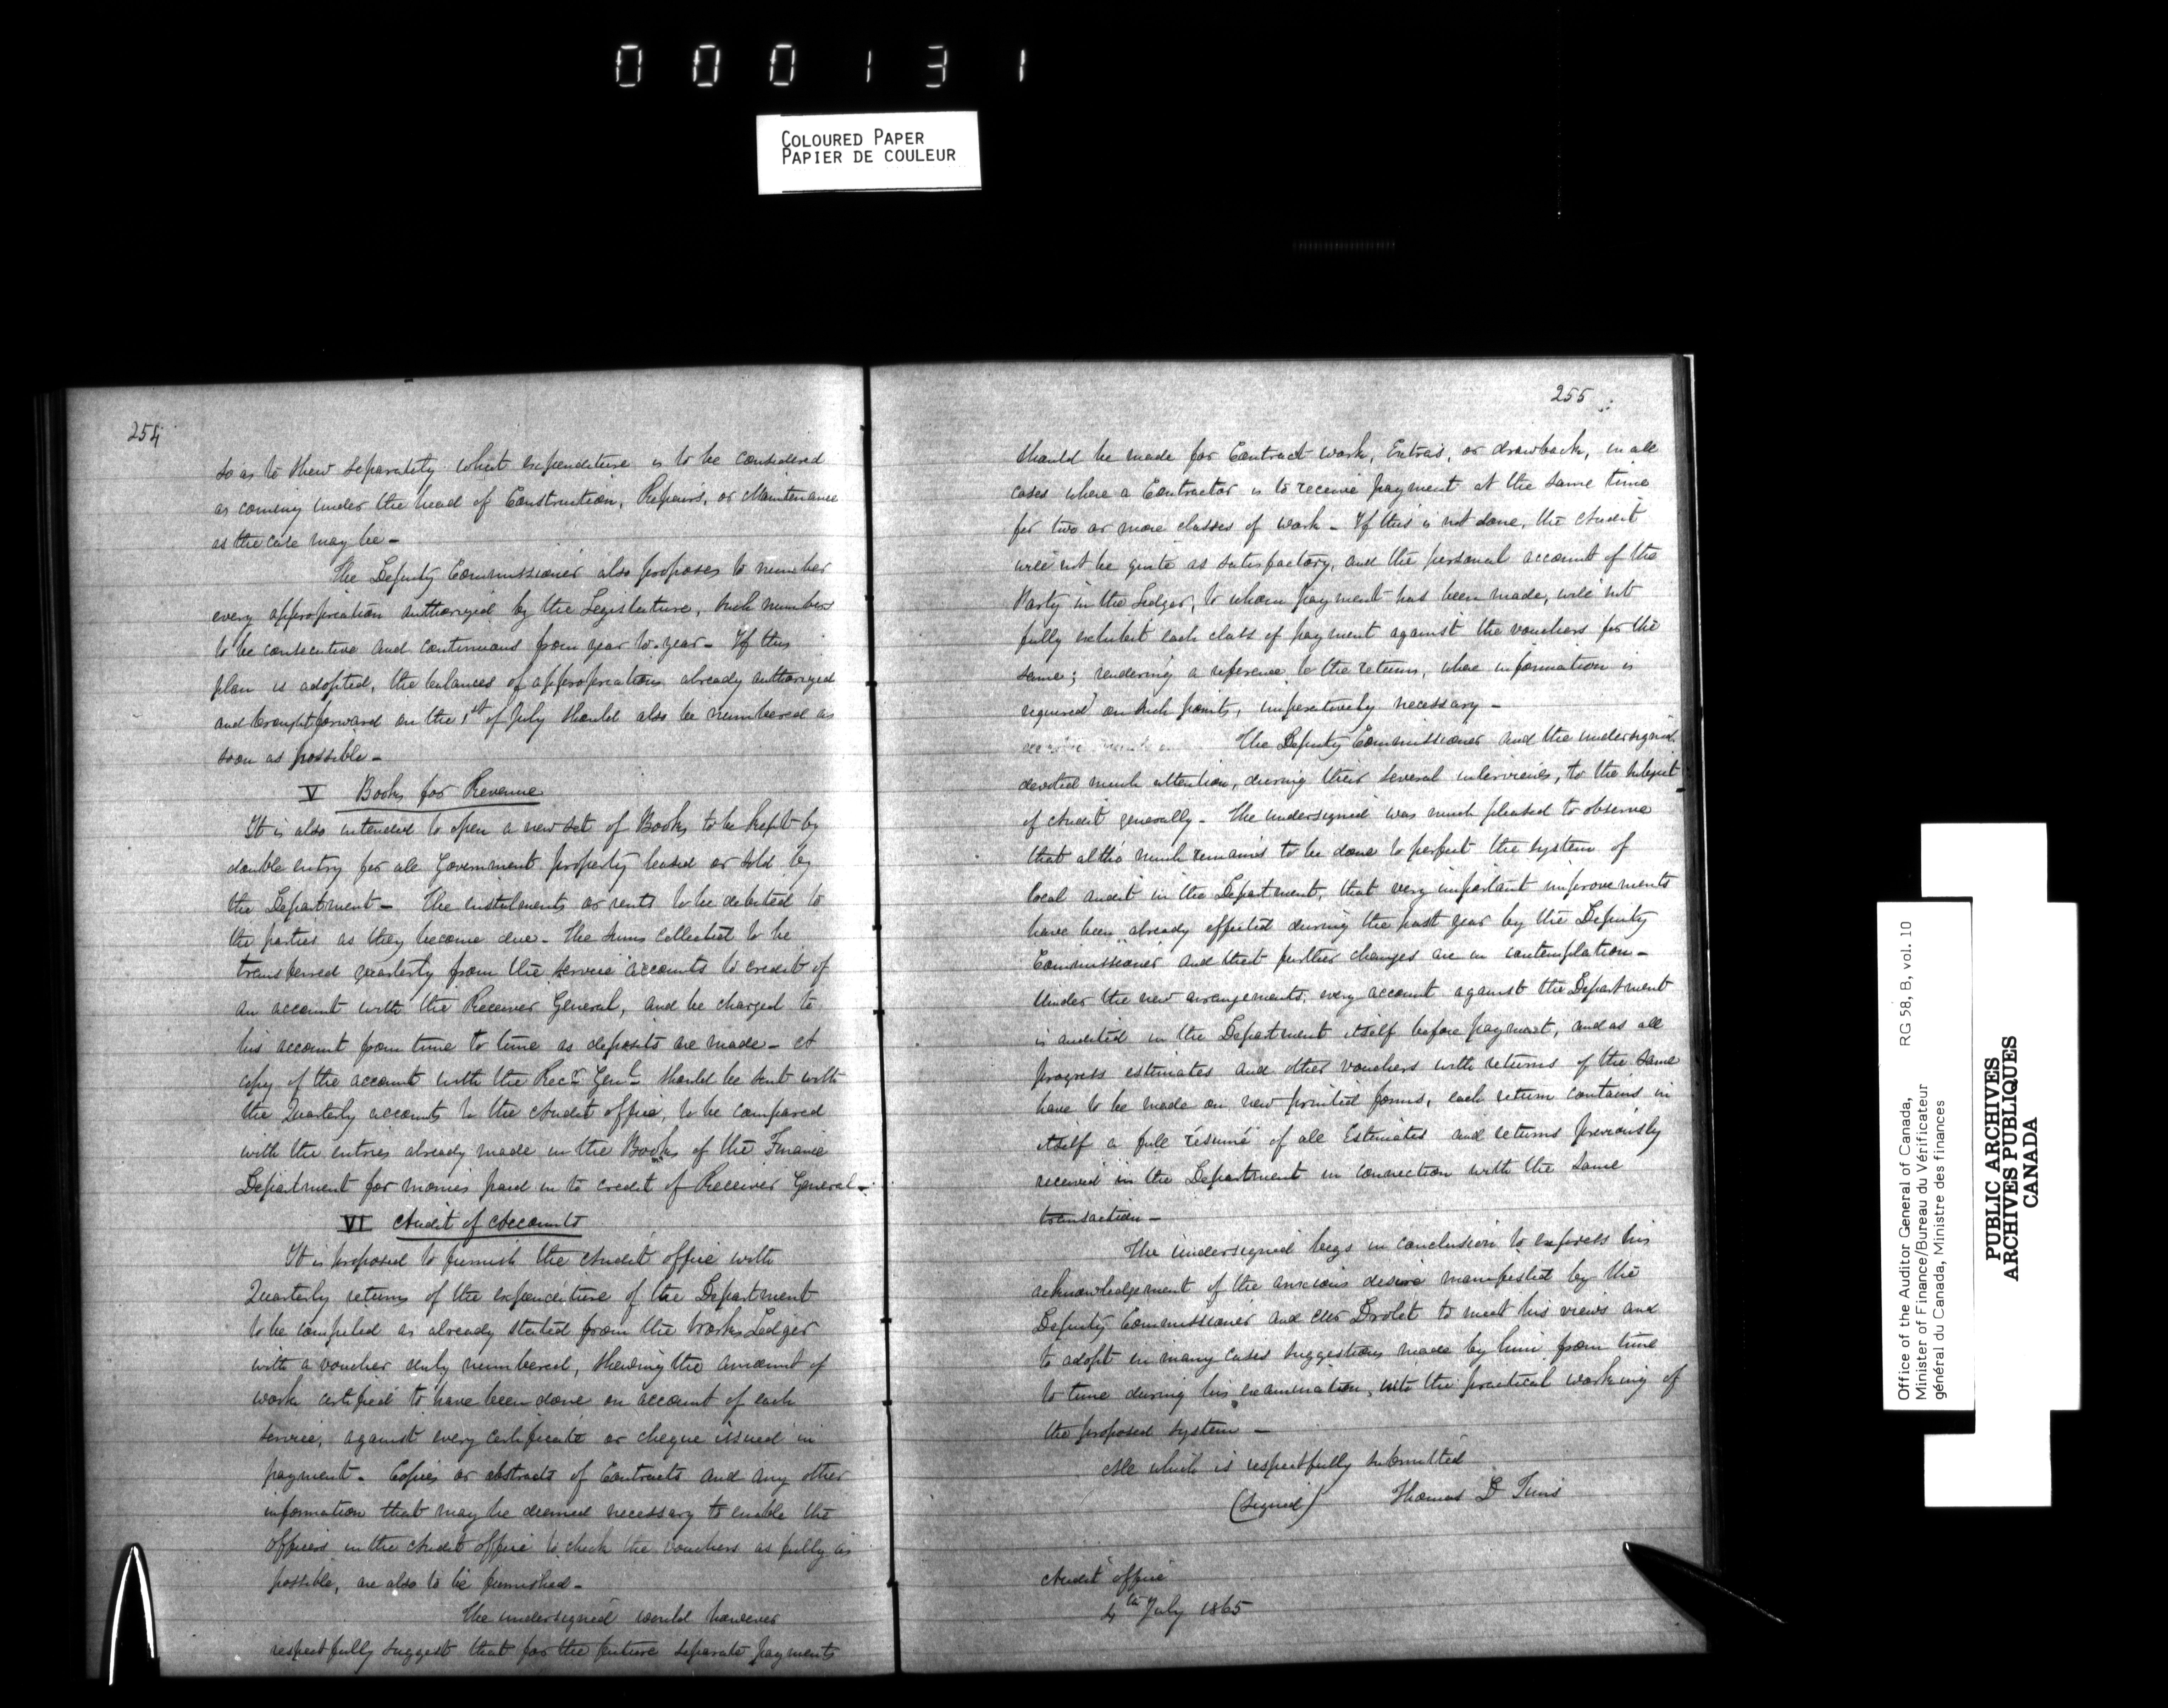 000131
COLOURED PAPER
PAPIER DE COULEUR
254
so as to shew separately what expenditure is to be considered
as coming under the head of Construction, Repairs, or Maintenance
as the case may be -
The Deputy Commissioner also proposes to number
every appropriation authorized by the Legislature, such numbers
to be consecutive and continuous from year to year - If this
plan is adopted, the balances of appropriations already authorized
and brought forward on the 1st of July should also be numbered as
soon as possible -
V Books for Revenue
It is also intended to open a new set of Books to be kept by
double entry for all Government property leased or sold by
the Department - The instalments or rents to be debited to
the parties as they become due - The sums collected to be
transferred quarterly from the service accounts to credit of
an account with the Receiver General, and be charged to
his account from time to time as deposits are made - A
copy of the account with the Recr Genl should be sent with
the Quarterly accounts to the Audit office, to be compared
with the entries already made in the Books of the Finance
Department for monies paid in to credit of Receiver General -
VI Audit of Accounts
It is proposed to furnish the Audit office with
Quarterly returns of the expenditure of the Department
to be compiled as already stated from the Works Ledger
with a voucher duly numbered, shewing the amount of
work certified to have been done on account of each
service, against every certificate or cheque issued in
payment - Copies or abstracts of Contracts and any other
information that may be deemed necessary to enable the
officers in the Audit office to check the vouchers as fully as
possible, are also to be furnished -
The undersigned would however
respectfully suggest that for the future separate payments
255
should be made for Contract work, Extras, or drawback, in all
cases where a Contractor is to receive payment at the same time
for two or more classes of work - If this is not done, the Audit
will not be quite as satisfactory, and the personal account of the
Party in the Ledger, to whom payment has been made, will not
fully exhibit each class of payment against the vouchers for the
same; rendering a reference to the returns, when information is
required on such points, imperatively necessary -
The Deputy Commissioner and the undersigned
devoted much attention, during their several interviews, to the subject
of Audit generally - The undersigned was much pleased to observe
that altho' much remains to be done to perfect the system of
local audit in the Department, that very important improvements
have been already effected during the past year by the Deputy
Commissioner and that further changes are in contemplation -
Under the new arrangements, every account against the Department
is audited in the Department itself before payment, and as all
progress estimates and other vouchers with returns of the same
have to be made on new printed forms, each return contains in
itself a full résumé of all Estimates and returns previously
received in the Department in connection with the same
transaction -
The undersigned begs in conclusion to express his
acknowledgement of the anxious desire manifested by the
Deputy Commissioner and Mr Drolet to meet his views and
to adopt in many cases suggestions made by him from time
to time during his examination, into the practical working of
the proposed system -
All which is respectfully submitted
(Signed) Thomas D Tims
Audit office
4th July 1865
Office of the Auditor General of Canada, RG 58, B, vol. 10
Minister of Finance/Bureau du Vérificateur
général du Canada, Ministre des finances
PUBLIC ARCHIVES
ARCHIVES PUBLIQUES
CANADA